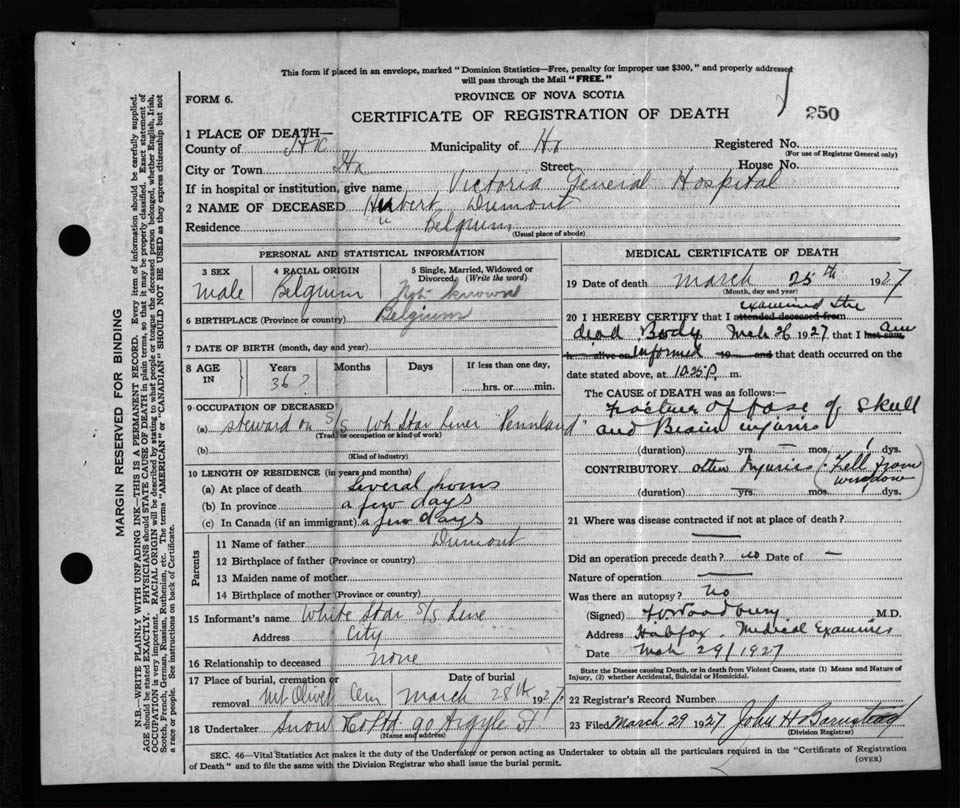 This form if placed in an envelope, marked "Dominion Statistics—Free, penalty for improper use $300," and properly addressed
will pass through the Mail "FREE."
FORM 6.
PROVINCE OF NOVA SCOTIA
CERTIFICATE OF REGISTRATION OF DEATH
250
1 PLACE OF DEATH—
County of Hx Municipality of Hx Registered No.
(For use of Registrar General only)
City or Town Hx Street House No.
If in hospital or institution, give name Victoria General Hospital
2 NAME OF DECEASED Hubert Dumont
Residence Belgium
(Usual place of abode)
PERSONAL AND STATISTICAL INFORMATION
3 SEX 4 RACIAL ORIGIN 5 Single, Married, Widowed or
Divorced. (Write the word)
Male Belgium Not known
6 BIRTHPLACE (Province or country) Belgium
7 DATE OF BIRTH (month, day and year)
8 AGE IN Years Months Days If less than one day,
36? hrs. or min.
9 OCCUPATION OF DECEASED
(a) Steward on S/S Wh Star Liner "Pennland"
(Trade or occupation or kind of work)
(b)
(Kind of industry)
10 LENGTH OF RESIDENCE (in years and months)
(a) At place of death Several hours
(b) In province a few days
(c) In Canada (if an immigrant) a few days
Parents
11 Name of father Dumont
12 Birthplace of father (Province or country)
13 Maiden name of mother
14 Birthplace of mother (Province or country)
15 Informant's name White Star S/S Line
Address City
16 Relationship to deceased none
17 Place of burial, cremation or removal Date of burial
Mt Olivet Cem March 28th 1927
18 Undertaker Snow & Co Ltd 90 Argyle St
(Name and address)
MEDICAL CERTIFICATE OF DEATH
19 Date of death March 25th 1927
(Month, day and year)
examined the
20 I HEREBY CERTIFY that I attended deceased from
dead Body Mch 26 1927 that I last saw am
h alive on informed 19 and that death occurred on the
date stated above, at 10.25 P. m.
The CAUSE OF DEATH was as follows:
Fracture of base of Skull
and Brain injuries
(duration) yrs. mos. dys.
CONTRIBUTORY other injuries (Fell from
window)
(duration) yrs. mos. dys.
21 Where was disease contracted if not at place of death?
—
Did an operation precede death? no Date of —
Nature of operation —
Was there an autopsy? No
(Signed) Woodbury M.D.
Address Halifax. Medical Examiner
Date Mch 29/1927
State the Disease causing Death, or in death from Violent Causes, state (1) Means and Nature of
Injury, (2) whether Accidental, Suicidal or Homicidal.
22 Registrar's Record Number
23 Filed March 29 1927 John H Barnstead
(Division Registrar)
SEC. 46—Vital Statistics Act makes it the duty of the Undertaker or person acting as Undertaker to obtain all the particulars required in the "Certificate of Registration
of Death" and to file the same with the Division Registrar who shall issue the burial permit.
(OVER)
MARGIN RESERVED FOR BINDING
N.B.—WRITE PLAINLY WITH UNFADING INK—THIS IS A PERMANENT RECORD. Every item of information should be carefully supplied.
AGE should be stated EXACTLY. PHYSICIANS should STATE CAUSE OF DEATH in plain terms, so that it may be properly classified. Exact statement of
OCCUPATION is very important. RACIAL ORIGIN will be described by stating to what people or tongue, the deceased person belonged, whether English, Irish,
Scotch, French, German, Russian, Ruthenian, etc. The terms "AMERICAN" or "CANADIAN" SHOULD NOT BE USED as they express citizenship but not
a race or people. See instructions on back of Certificate.